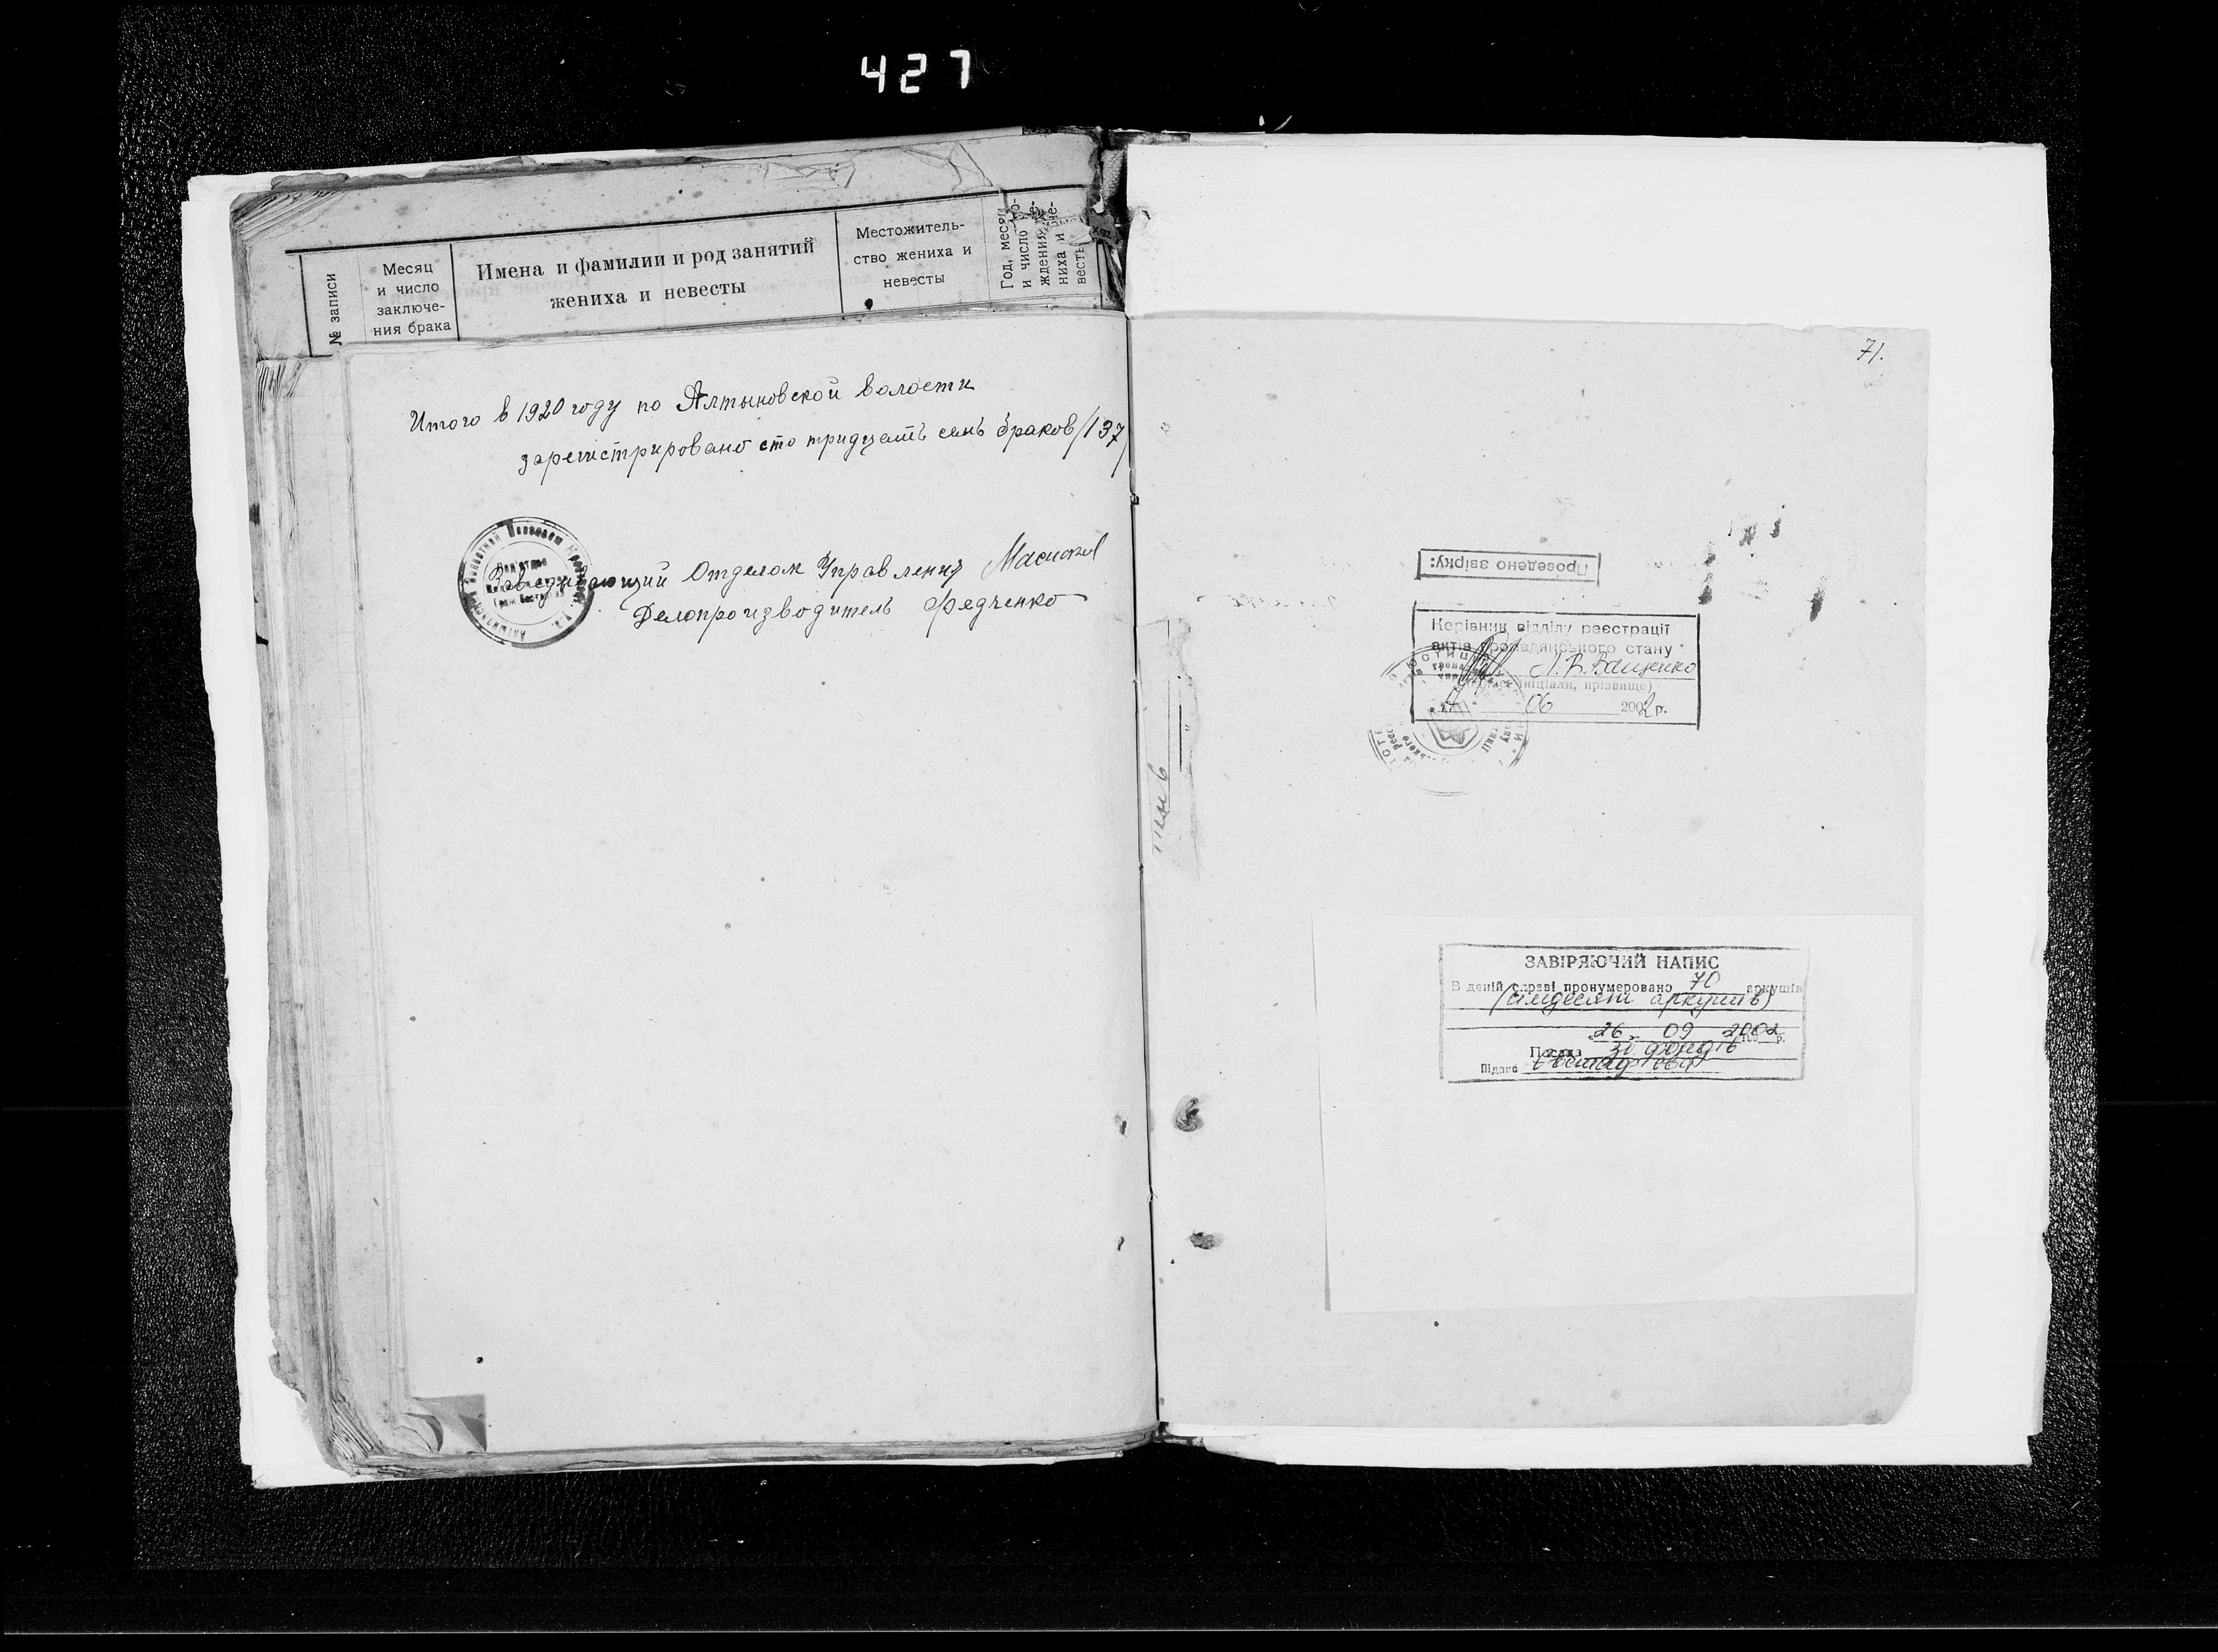 427
№ записи
Месяц
и число
заключе-
ния брака
Имена и фамилии и род занятий
жениха и невесты
Местожитель-
ство жениха и
невесты
Год, месяц
и число ро-
ждения же-
ниха и не-
весты
Итого в 1920 году по Алтыновской волости
зарегистрировано сто тридцать семь браков /137/
Заведующий Отделом Управления
Делопроизводитель Федченко
71.
Проведено звірку:
Керівник відділу реєстрації
актів громадянського стану
Л.В.Ващенко
(ініціали, прізвище)
06 2002 р.
ЗАВІРЯЮЧИЙ НАПИС
В даній справі пронумеровано 70 аркушів
(сімдесят аркушів)
26. 09 2002 р.
Посада
Підпис